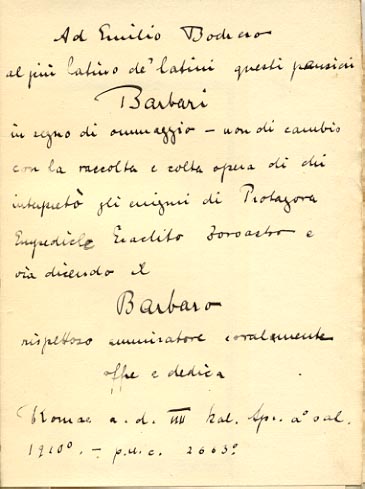 Ad Emilio Bodrero
al più latino de' latini questi pensieri
Barbari
in segno di ommaggio – non di cambio
con la raccolta e colta opera di chi
interpretò gli enigmi di Protagora
Empedicle Eraclito Zoroastro e
via dicendo il
Barbaro
rispettoso ammiratore coralmente
offre e dedica
Romae a. d. IIII Kal. Apr. a° sal.
1910°. – p.u.c. 2663°